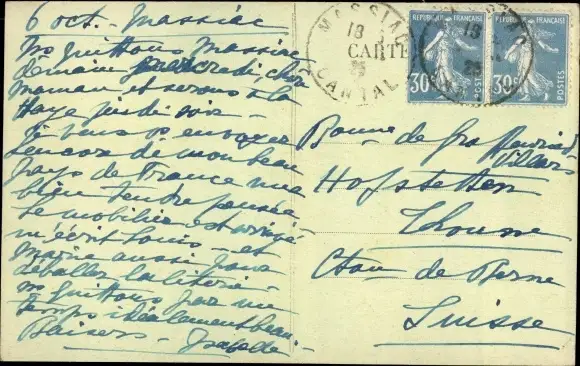 6 oct. - Massiac
ns quittons Massiac
demain mercredi, chère
maman et serons à la
Haye jeudi soir -
Je veux vs envoyer
encore de mon beau
pays de France une
bien tendre pensée
Le mobilier est arrivé
m'écrit Louis - et
Marie aussi pour
déballer la literie -
ns quittons par un
temps idéalement beau -
Baisers -
MASSIAC
18
25
CANTAL
CARTE
RÉPUBLIQUE FRANÇAISE
30c
POSTES
RÉPUBLIQUE FRANÇAISE
30c
POSTES
Bonne de
Villars
Hofstetten
Thoune
Cton de Berne
Suisse